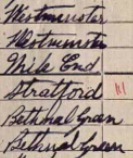 Westminster
Westminster
Mile End
Stratford
Bethnal Green
Bethnal Green